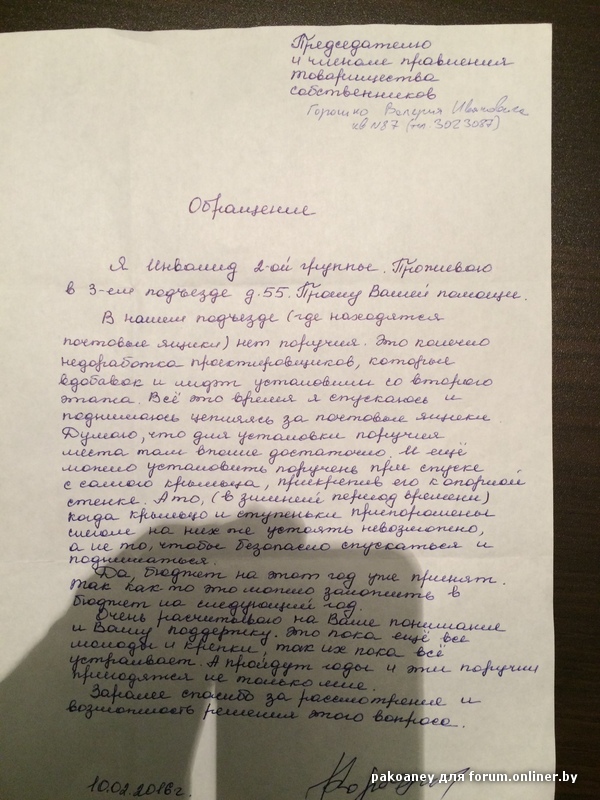 Председателю
и членам правления
товарищества
собственников
Горошко Валерия Ивановича
кв №87 (тел. 3023087)
Обращение
Я Инвалид 2-ой группы. Проживаю
в 3-ем подъезде д.55. Прошу Вашей помощи.
В нашем подъезде (где находятся
почтовые ящики) нет поручня. Это конечно
недоработка проектировщиков, которые
вдобавок и лифт установили со второго
этажа. Всё это время я спускаюсь и
поднимаюсь цепляясь за почтовые ящики
Думаю, что для установки поручня
места там вполне достаточно. И ещё
можно установить поручень при спуске
с самого крыльца, прикрепив его к опорной
стенке. А то, (в зимний период времени)
когда крыльцо и ступеньки припорошены
снегом на них же устоять невозможно,
а не то, чтобы безопасно спускаться и
подниматься.
Да, бюджет на этот год уже принят.
Так как то это можно заложить в
бюджет на следующий год.
Очень расчитываю на Ваше понимание
и Вашу поддержку. Это пока ещё все
молоды и крепки, так их пока всё
устраивает. А пройдут годы и эти поручни
пригодятся не только мне.
Заранее спасибо за рассмотрение и
возможность решения этого вопроса.
10.02.2016г.
pakoaney для forum.onliner.by